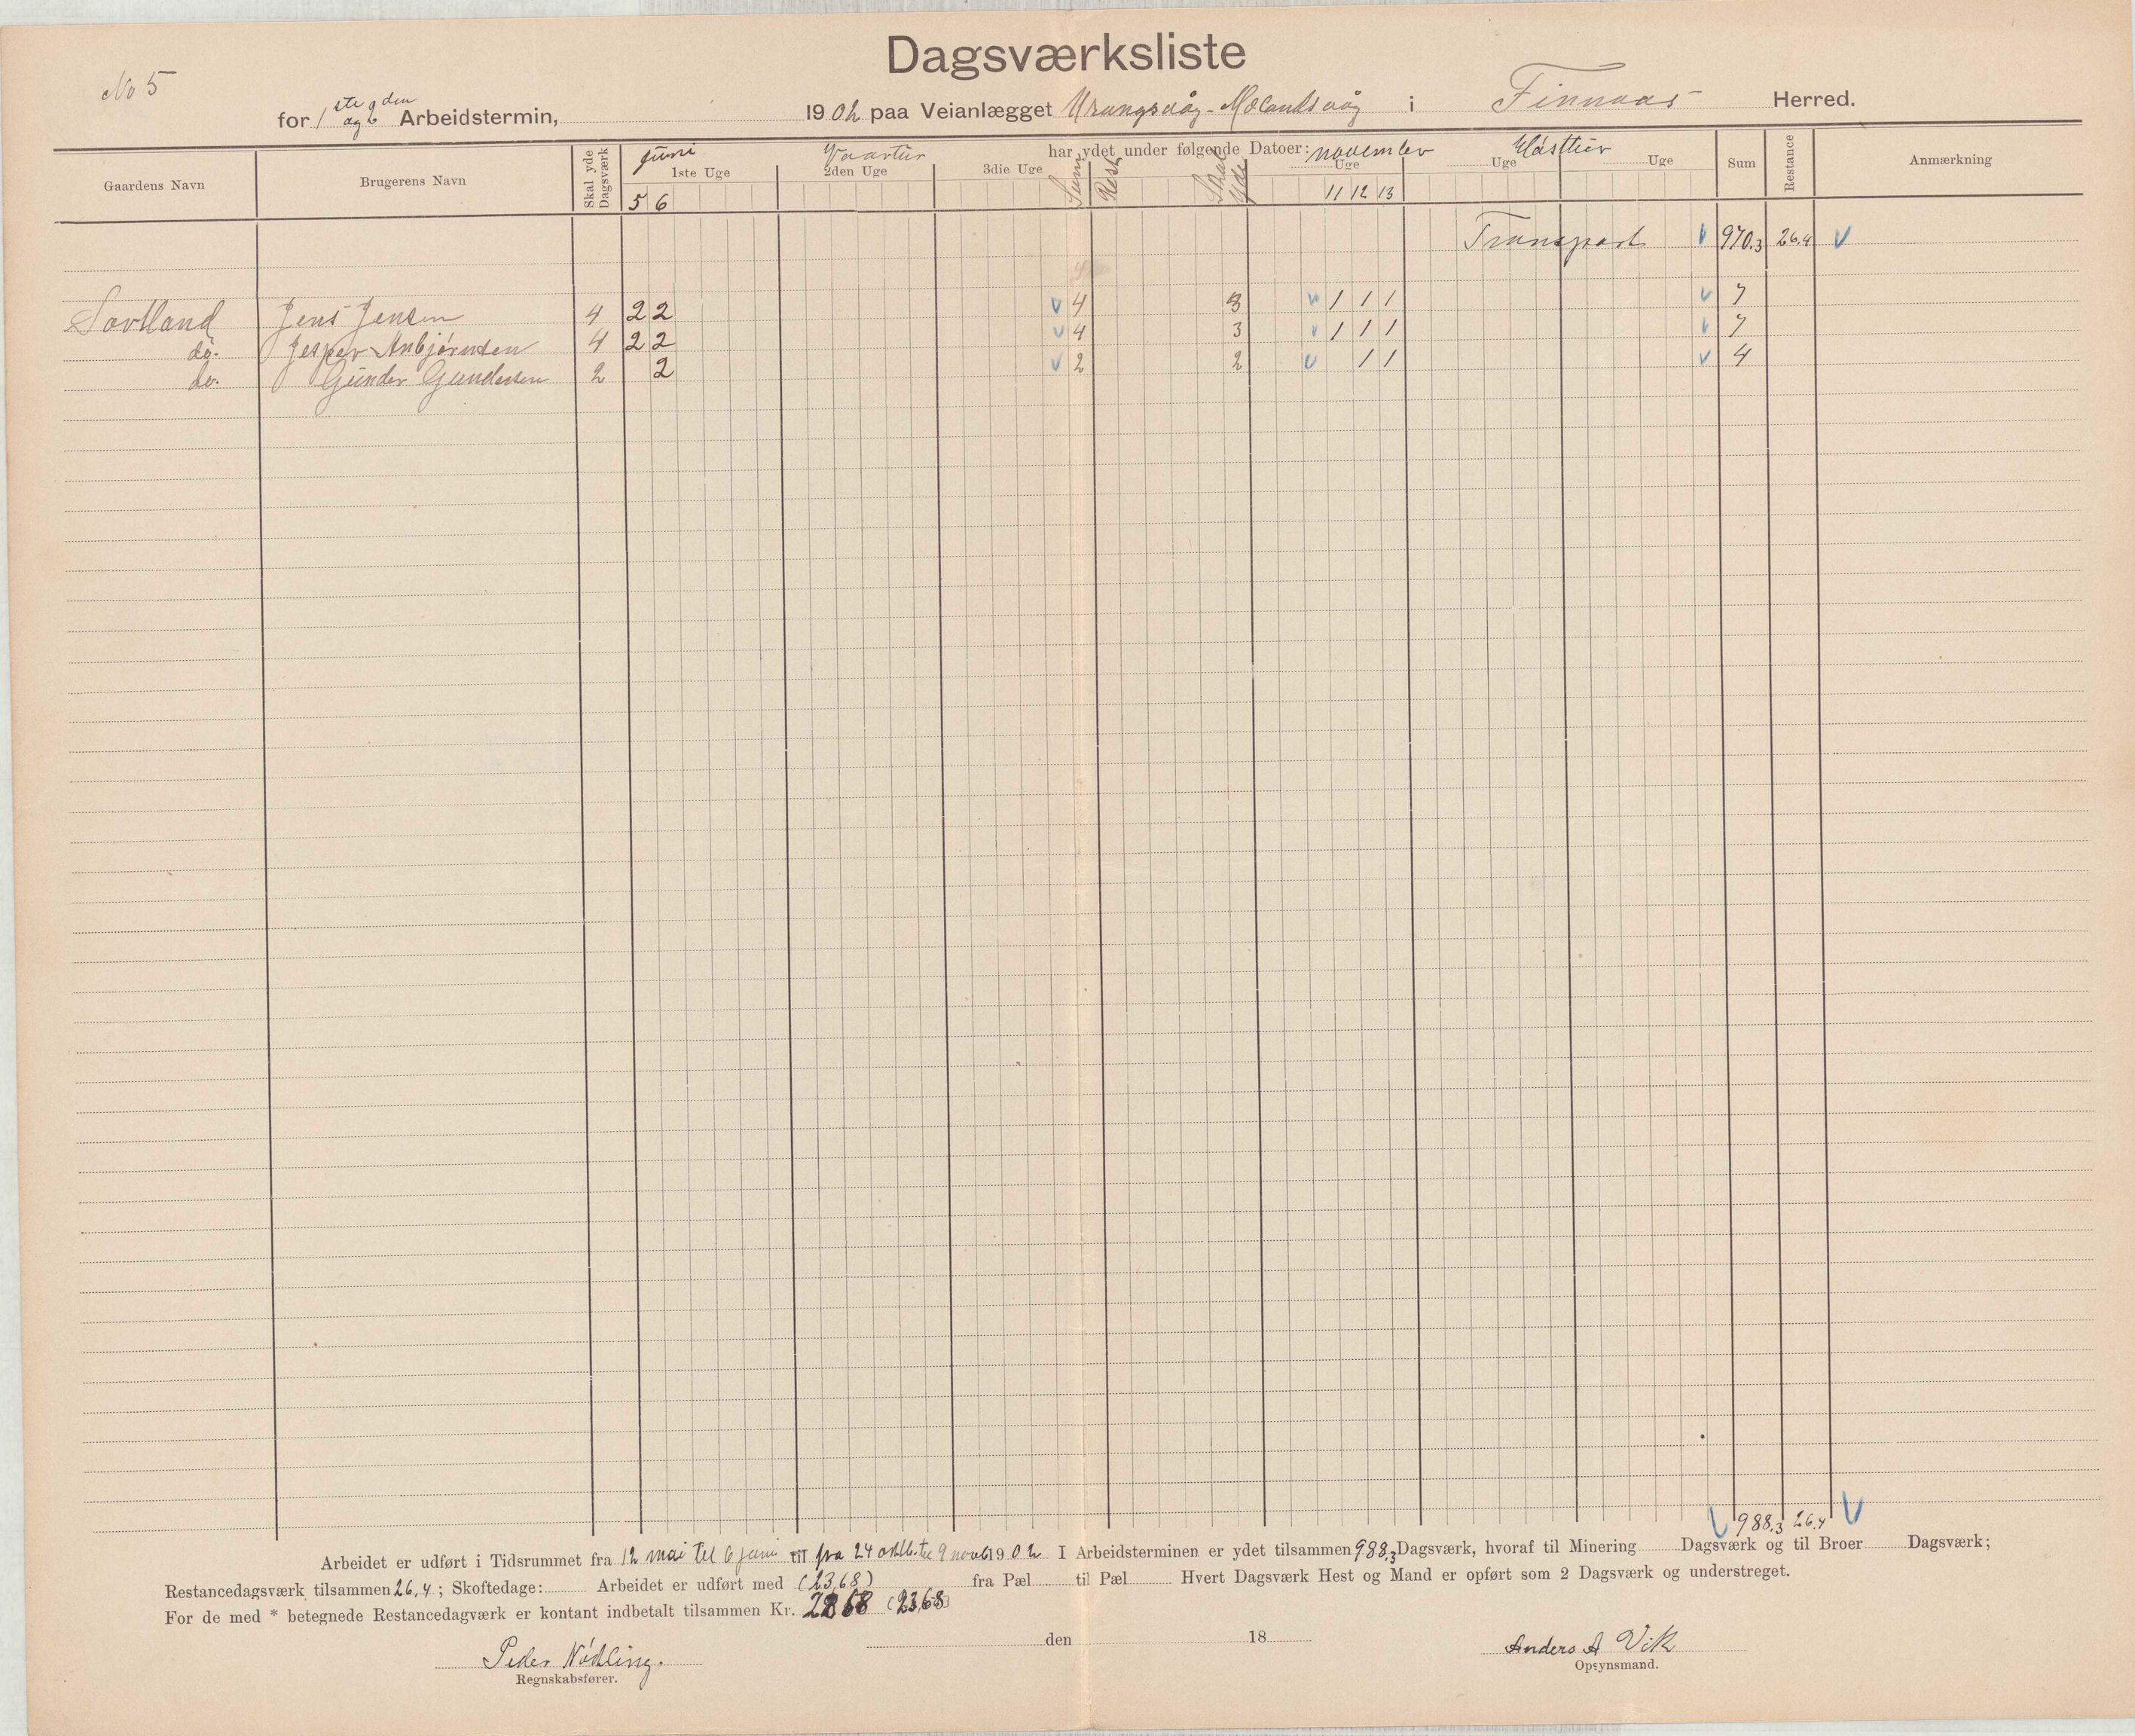 Dagsværksliste
No 5
for 1ste og 2den Arbeidstermin, 1902 paa Veianlægget Urangsvåg - Mælandsvåg i Finnaas Herred.
Gaardens Navn Brugerens Navn Skal yde Dagsværk har ydet under følgende Datoer: Sum Restance Anmærkning
juni Vaartur november Hästtur
1ste Uge 2den Uge 3die Uge Sum Rest Skal yde Uge Uge Uge
5 6 11 12 13
Transport V 970.3 26.4 V
Sortland Jens Jensen 4 2 2 V 4 3 V 1 1 1 V 7
do. Jesper Anbjørnsen 4 2 2 V 4 3 V 1 1 1 V 7
do. Gunder Gundersen 2 2 V 2 2 V 1 1 V 4
V 988.3 26.4 V
Arbeidet er udført i Tidsrummet fra 12 mai til 6 juni til fra 24 oktb. til 9 novb 1902 I Arbeidsterminen er ydet tilsammen 988.3 Dagsværk, hvoraf til Minering Dagsværk og til Broer Dagsværk;
Restancedagsværk tilsammen 26.4; Skoftedage: Arbeidet er udført med (23,68) fra Pæl til Pæl Hvert Dagsværk Hest og Mand er opført som 2 Dagsværk og understreget.
For de med * betegnede Restancedagværk er kontant indbetalt tilsammen Kr. (23,68)
den 18
Peder Nødling. Anders A Vik
Regnskabsfører. Opsynsmand.